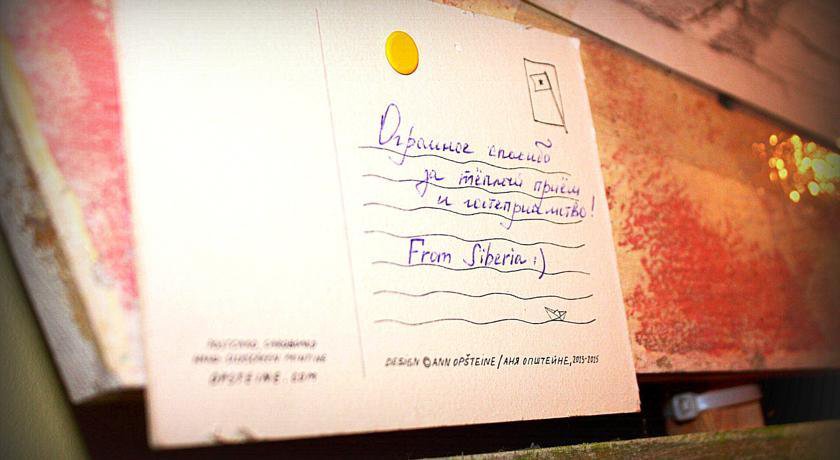 Огромное спасибо
за тёплый приём
и гостеприимство!
From Siberia :)
DESIGN ©ANN OPŠTEINE/АНЯ ОПШТЕЙНЕ, 2013-2015
OPSTEINE.COM